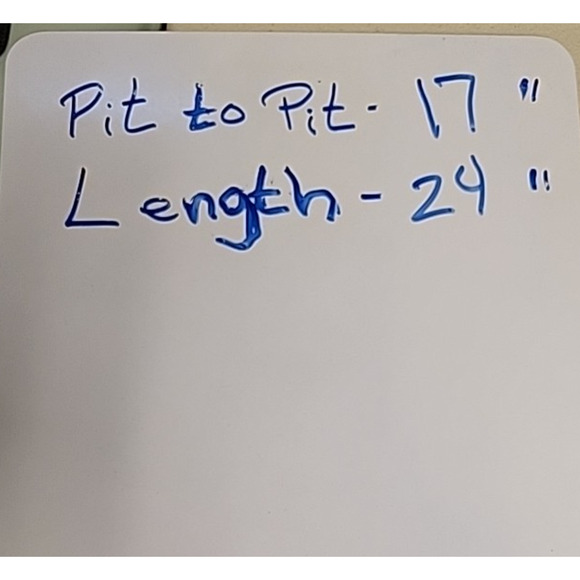 Pit to Pit - 17 "
Length - 24 "